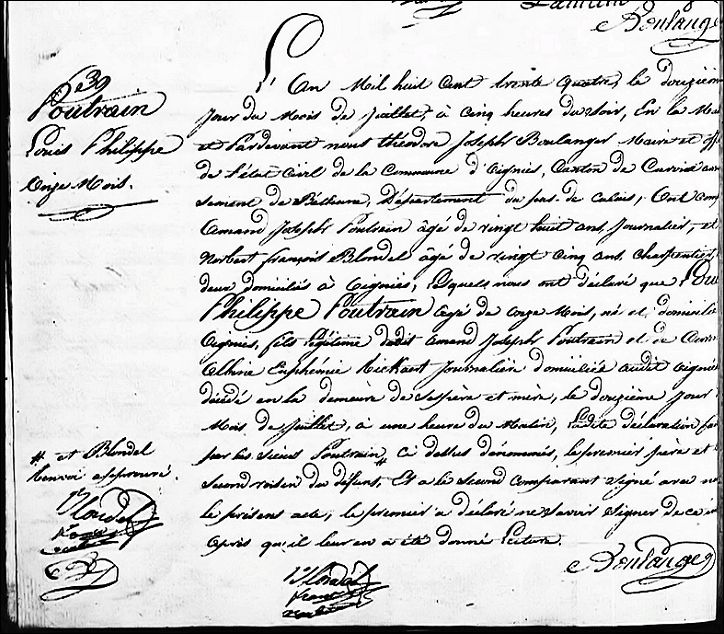 Boulanger
39
Poutrain
Louis Philippe
Onze Mois.
L'An Mil huit Cent trente quatre, le douzièm
jour du Mois de Juillet, à Cinq heures du Soir, En la Ma
et Pardevant nous théodore Joseph Boulanger Maire et off
de l'état Civil de la Commune d'Oignies, Canton de Carvin arr
sement de Béthune, Département du pas-de-Calais, Ont com
Amand Joseph Poutrain âgé de vingt huit ans, Journalier, et
Norbert françois Blondel âgé de vingt Cinq ans, Charpentier,
deux domiciliés à Oignies, lesquels nous ont déclaré que Loui
Philippe Poutrain âgé de onze Mois, né et domicilié
Oignies, fils légitime dudit Amand Joseph Poutrain et de
Euphémie Journalière domiciliée audit Oignies
décédé en la demeure de ses père et mère, le douzième jour
Mois de Juillet, à une heure du Matin, Ladite déclaration fai
par les Sieurs Poutrain # Ci dessus dénommés, le premier père et
Second voisin du défunt, Et a le Second Comparant Signé avec no
le présent acte, le premier a déclaré ne Savoir Signer de ce in
après qu'il leur en a été donné lecture.
# et Blondel
renvoi approuvé.
Blondel
B
Blondel
Boulanger